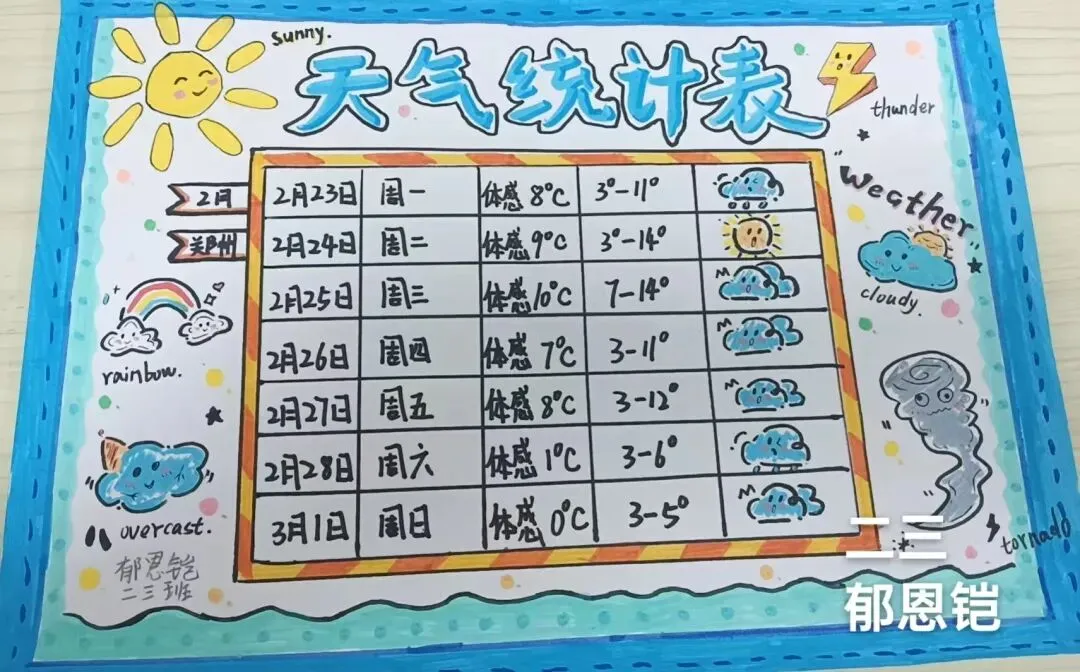 sunny.
天气统计表
thunder
weather
2月
郑州
2月23日 周一 体感 8°C 3°-11°
2月24日 周二 体感 9°C 3°-14°
2月25日 周三 体感 10°C 7-14°
2月26日 周四 体感 7°C 3-11°
2月27日 周五 体感 8°C 3-12°
2月28日 周六 体感 1°C 3-6°
3月1日 周日 体感 0°C 3-5°
cloudy.
rainbow.
overcast.
tornado
郁恩铠
二三班
二三
郁恩铠